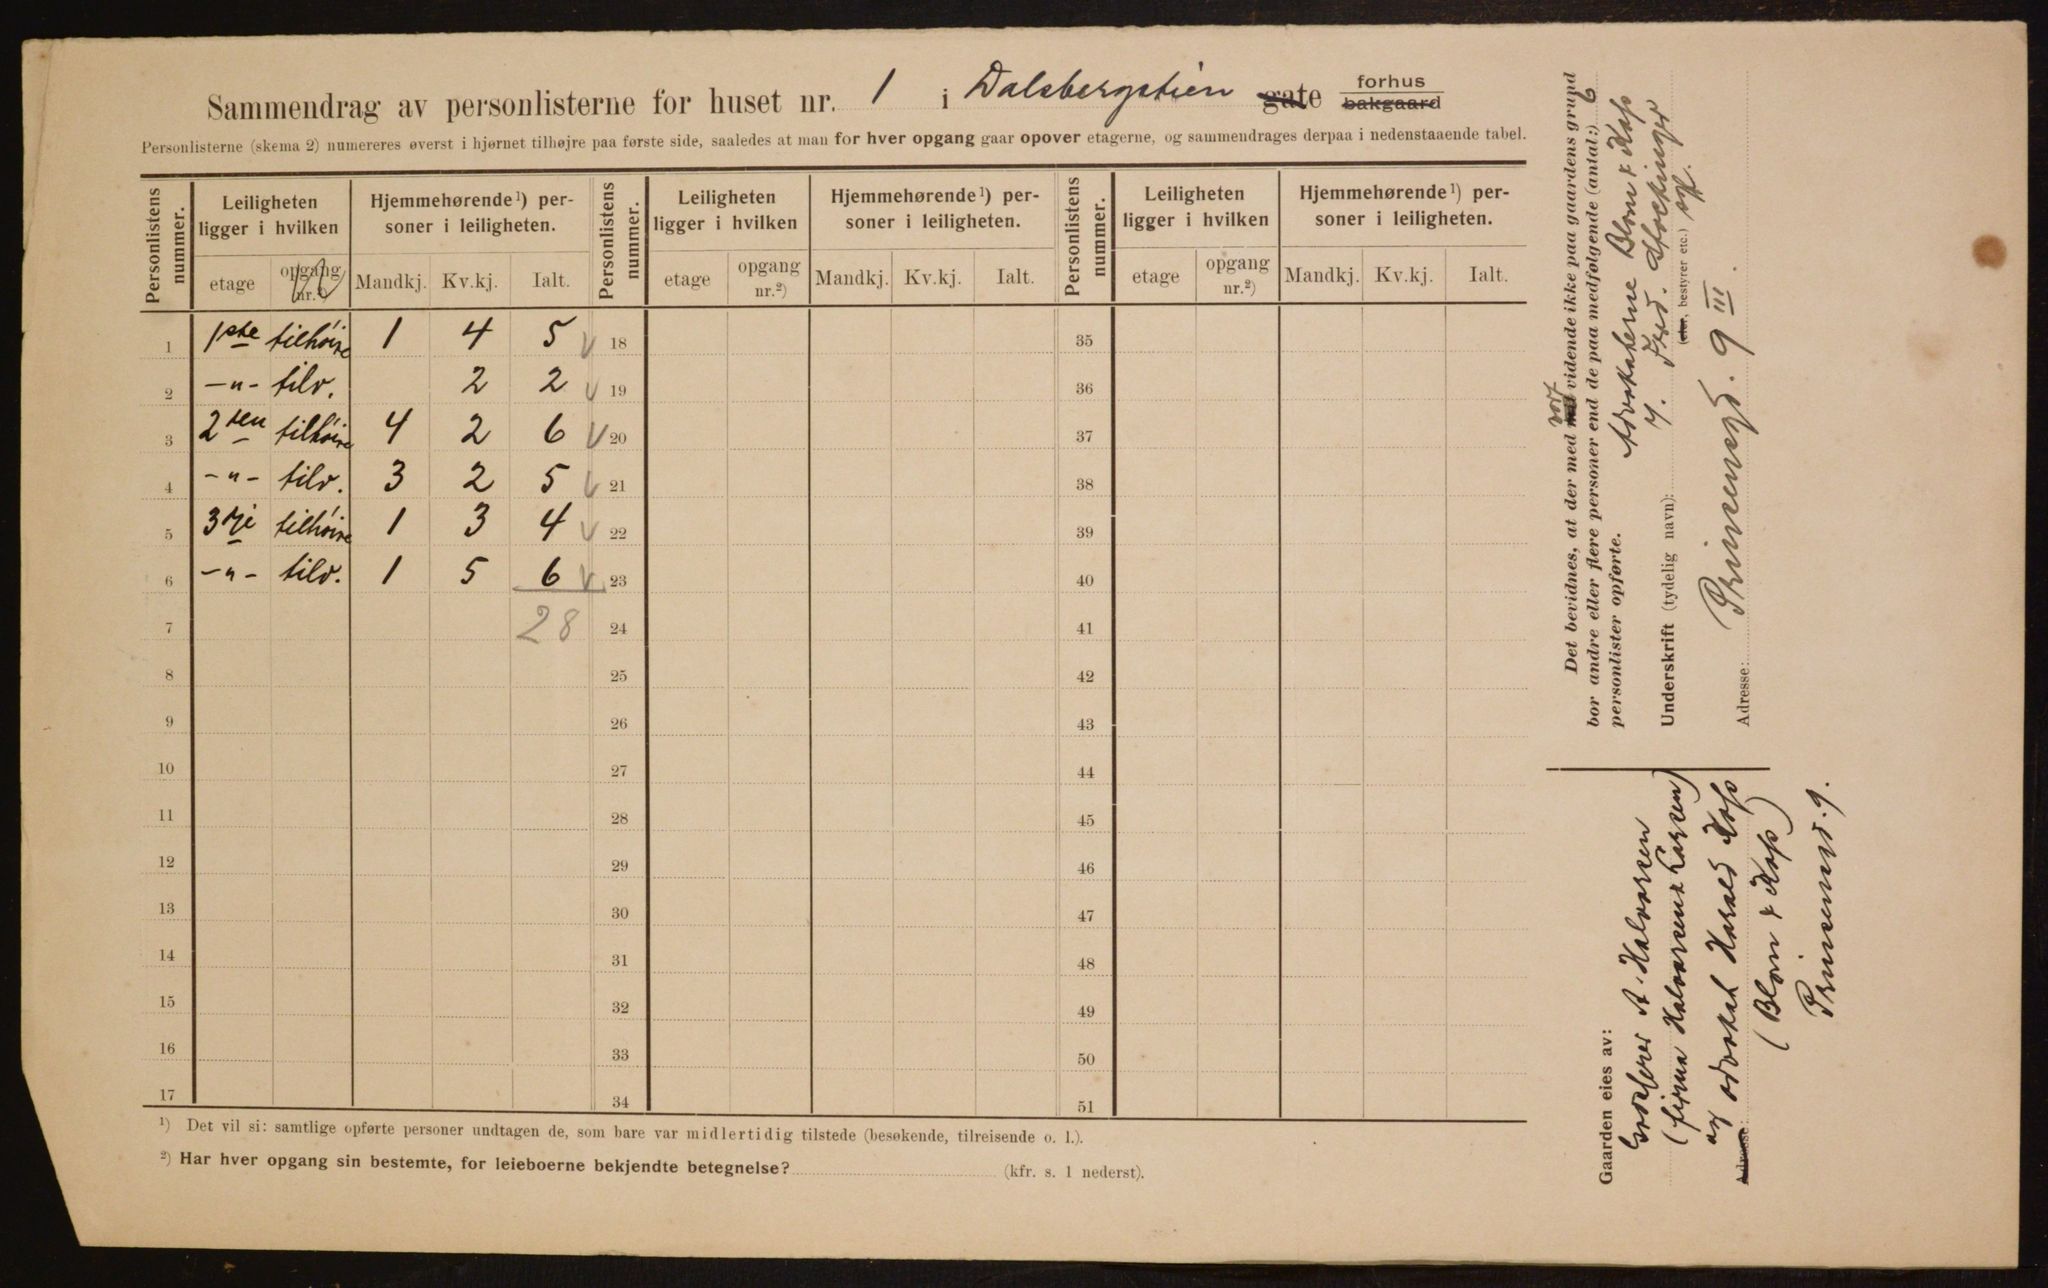 Sammendrag av personlisterne for huset nr. 1 i Dalsbergstien gate forhus bakgaard
Personlisterne (skema 2) numereres øverst i hjørnet tilhøjre paa første side, saaledes at man for hver opgang gaar opover etagerne, og sammendrages derpaa i nedenstaaende tabel.
Personlistens nummer. Leiligheten ligger i hvilken Hjemmehørende¹) personer i leiligheten. Personlistens nummer. Leiligheten ligger i hvilken Hjemmehørende¹) personer i leiligheten. Personlistens nummer. Leiligheten ligger i hvilken Hjemmehørende¹) personer i leiligheten.
etage opgang nr.²) Mandkj. Kv.kj. Ialt. etage opgang nr.²) Mandkj. Kv.kj. Ialt. etage opgang nr.²) Mandkj. Kv.kj. Ialt.
1 1ste tilhöire 1 4 5 18 35
2 -"- tilv. 2 2 19 36
3 2den tilhöire 4 2 6 20 37
4 -"- tilv. 3 2 5 21 38
5 3die tilhöire 1 3 4 22 39
6 -"- tilv. 1 5 6 23 40
7 28 24 41
8 25 42
9 26 43
10 27 44
11 28 45
12 29 46
13 30 47
14 31 48
15 32 49
16 33 50
17 34 51
¹) Det vil si: samtlige opførte personer undtagen de, som bare var midlertidig tilstede (besøkende, tilreisende o. l.).
²) Har hver opgang sin bestemte, for leieboerne bekjendte betegnelse? (kfr. s. 1 nederst).
Det bevidnes, at der med vort vidende ikke paa gaardens grund
bor andre eller flere personer end de paa medfølgende (antal:) 6
personlister opførte.
Advokaterne Blom & Koss
Underskrift (tydelig navn):
(eier, bestyrer etc.)
Adresse: Prinsensgd. 9 III.
Gaarden eies av:
A. Halvorsen
(firma Halvorsen & Larsen)
og advokat Harald Koss
Adresse:
(Blom & Koss)
Prinsensgd. 9.